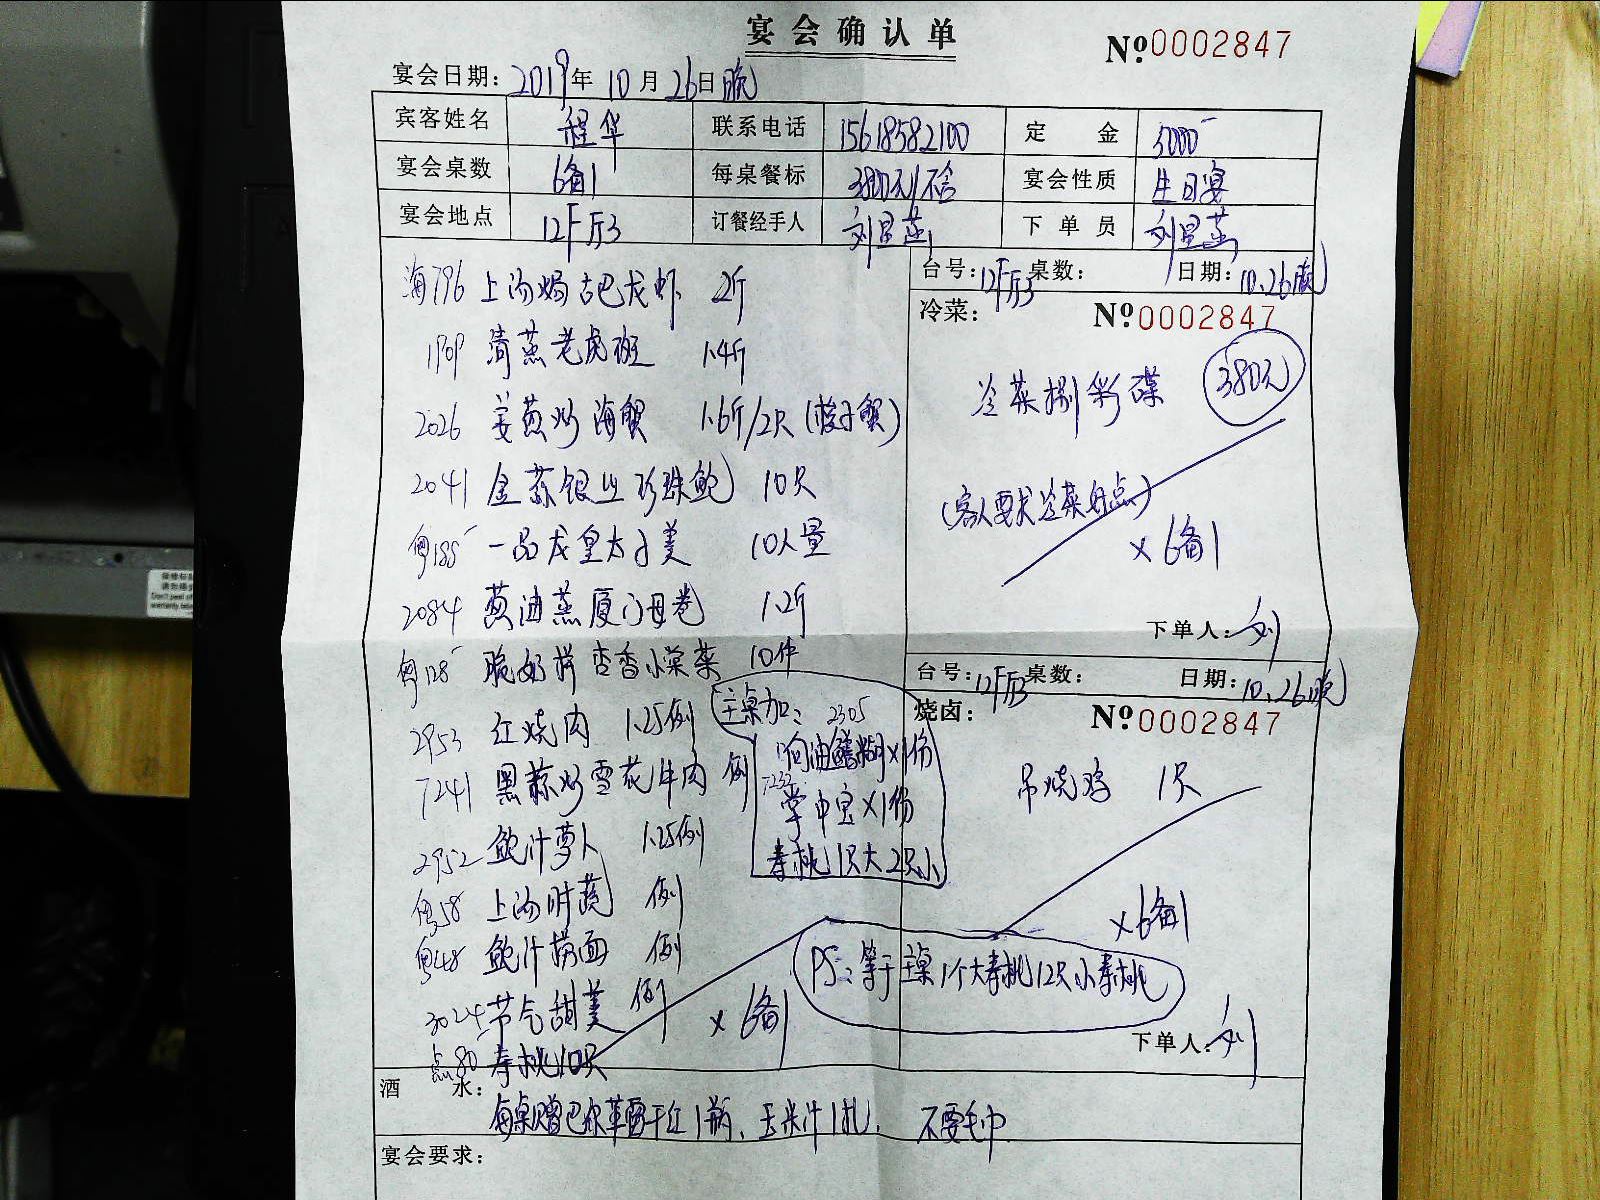 宴会确认单
№ 0002847
宴会日期: 2019年 10月 26日晚
宾客姓名 程华 联系电话 15618582100 定金 5000
宴会桌数 6备1 每桌餐标 3800元/不含 宴会性质 生日宴
宴会地点 12F厅3 订餐经手人 刘 下单员 刘
海796 上汤焗古巴龙虾 2斤
1909 清蒸老虎斑 1.4斤
2026 姜葱炒海蟹 1.6斤/2只(梭子蟹)
2041 金蒜银丝珍珠鲍 10只
粤188 一品龙皇太子羹 10人量
2084 葱油蒸厦门 1.2斤
粤128 脆奶拼杏香小棠菜 10件
2953 红烧肉 1.25例
7241 黑蒜炒雪花牛肉 例
2952 鲍汁萝卜 1.25例
粤58 上汤时蔬 例
粤48 鲍汁捞面 例
3024 节气甜羹 例
点80 寿桃10只
×6备1
主桌加: 2305
响油鳝糊×1份
7232 掌中宝×1份
寿桃1只大2只小
台号: 12F厅3 桌数: 日期: 10.26晚
冷菜: № 0002847
冷菜捌彩碟 380元
(客人要求冷菜好点)
×6备1
下单人: 刘
台号: 12F厅3 桌数: 日期: 10.26晚
烧卤: № 0002847
吊烧鸡 1只
×6备1
PS: 等于主桌1个大寿桃12只小寿桃
下单人: 刘
酒水:
每桌赠巴尔菲干红1瓶、玉米汁1扎, 不要毛巾
宴会要求: